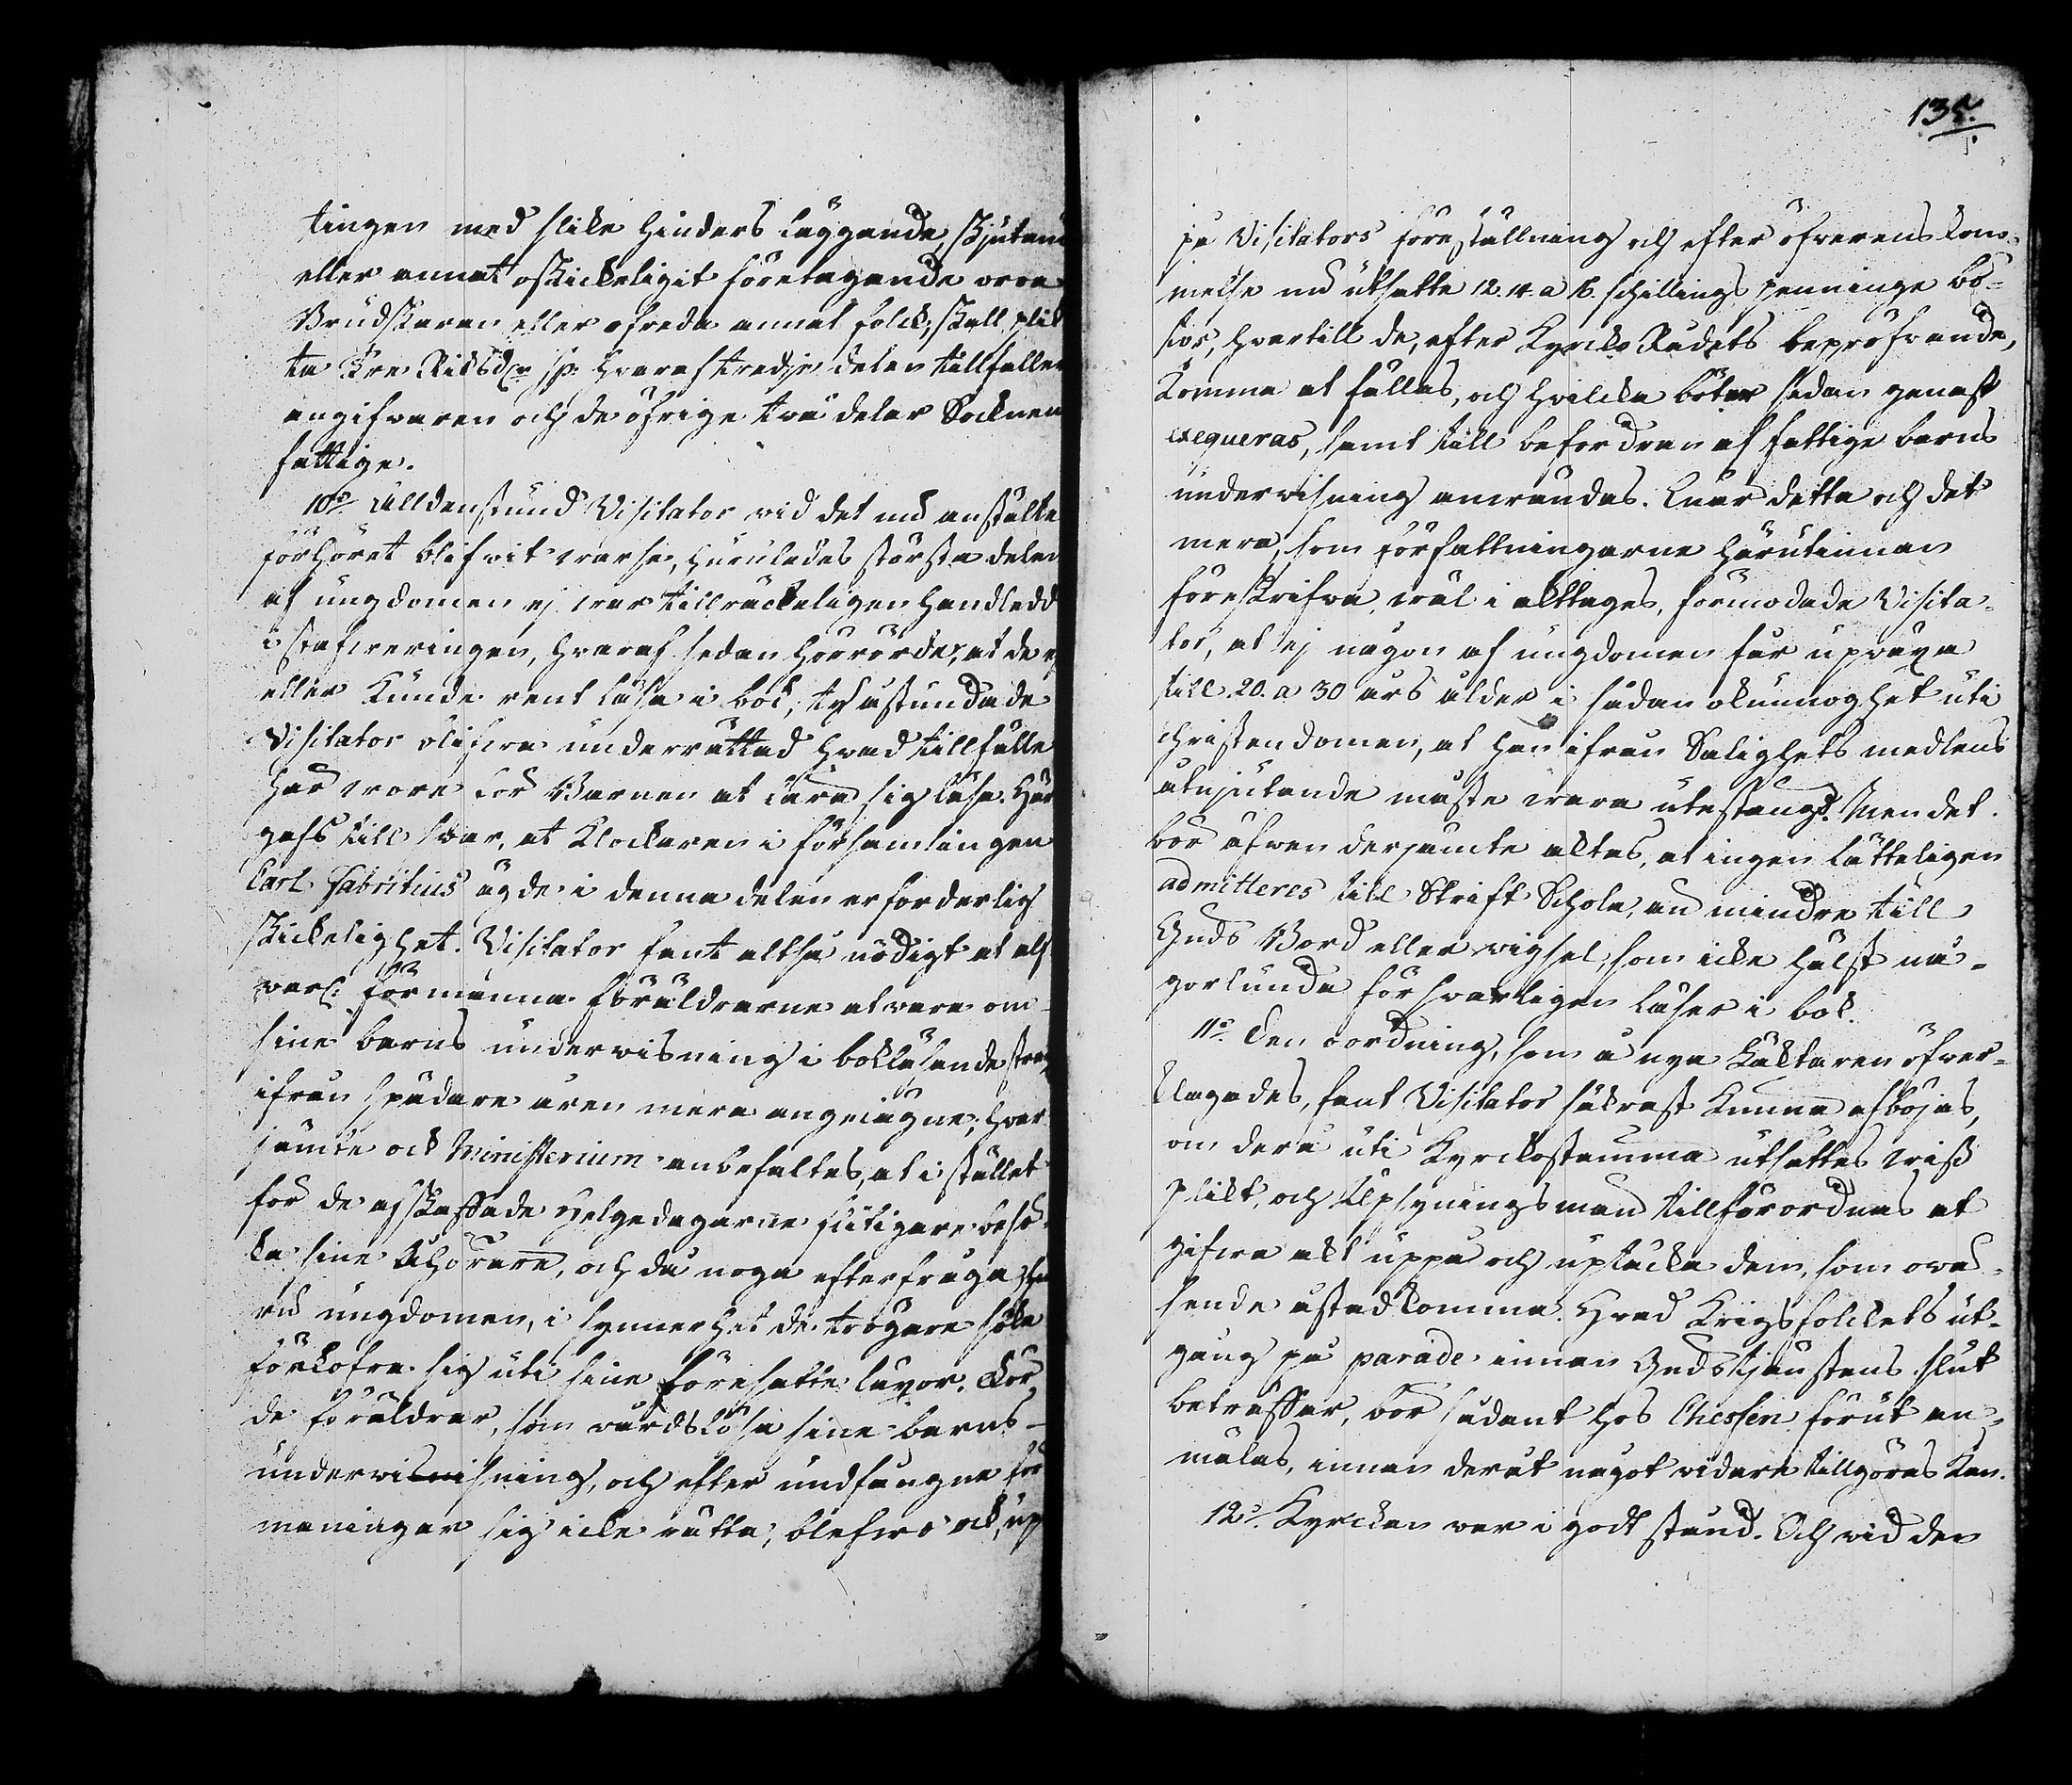 tingen med slike hinders läggande, skjutan
eller annat oskickeligit företagande oroa
Brudskaran eller ofreda annat folck; skall plik
ta Tre Riksd:r sp: hvaraf tredje delen tillfaller
angifvaren och de öfrige två delar Socknen
fattige.
10:o Alldenstund Visitator vid det nu anstälte
förhöret blifvit varse, huruledes största delen
af ungdomen ej var tillräckeligen handledd
i stafveringen, hvaraf sedan härrörde, at de ej
eller kunde rent läsa i bok; ty åstundade
Visitator blifva underrättad hvad tillfälle
här vore för Barnen at lära sig läsa. Här
gafs till svar, at Klockaren i församlingen
Carl Fabritius ägde i denna delen erforderlig
skickelighet. Visitator fant altså nödigt at alf
varl: förmana föräldrarne at vara om
sine barns undervisning i bokläsande strax
ifrån spädare åren mera angelägne; hvar
jämte ock Ministerium anbefaltes, at i stället
för de afskaffade Helgedagarne flitigare besö-
ka sine Åhörare, och då noga efterfråga hu
ru ungdomen, i synnerhet de trögare söka
förkofra sig uti sine föresatte läxor. För
de föräldrar, som vårdslösa sine barns
undervisning, och efter undfångne för
maningar sig icke rätta; blefvo ock, up
135.
på Visitators föreställning och efter öfverens kom-
melse nu utsatte 12. 14. a 16. schillings penninge bö-
ter, hvartill de, efter Kyrcko Rådets bepröfvande,
komma at fällas, och hvilcka böter sedan genast
exequeras, samt till befordran af fattige barns
undervisning användas. Enär detta och det
mera, som författningarne härutinnan
föreskrifva, väl i akttages, förmodade Visita-
tor, at ej någon af ungdomen får upväxa
till 20. a 30 års ålder i sådan okunnoghet uti
christendomen, at han ifrån Salighets medlens
åtnjutande måste vara utestängd. Men det
bör äfven derjemte aktas, at ingen lätteligen
admitteres till Skrift Schola, än mindre till
Guds Bord eller vigsel, som icke hälst nå-
gorlunda försvarligen läser i bok.
11:o Den oordning, som å nya Läktaren öfver-
klagades, fant Visitator säkrast kunna afböjas,
om derå uti Kyrckostämma utsättes viss
plikt, och Upsyningsman tillförordnas at
gifva akt uppå och uptäcka dem, som ovä-
sende åstadkomma. Hvad Krigsfolckets ut-
gång på parade innan Gudstjenstens slut
beträffar, bör sådant hos Cheffen förut an-
mälas, innan deråt något vidare tillgöras kan.
12:o Kyrckan var i godt stånd. Och vid den